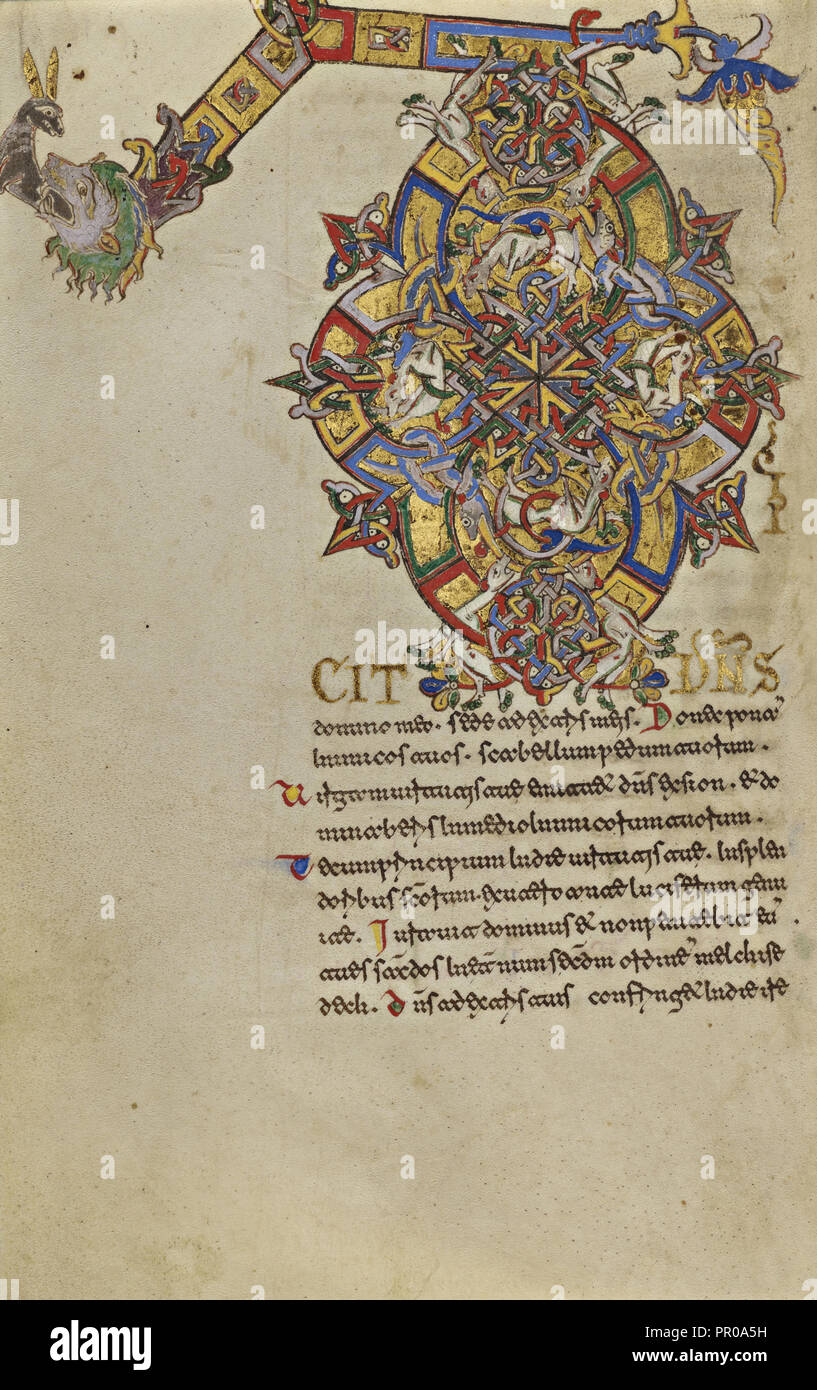 CIT DN̄S
domino meo. sede a dextris meis. Donec ponā
inimicos tuos. scabellum pedum tuorum.
Uirgam uirtutis tue emittet dn̄s ex sion. et do
minaberis in medio inimicorum tuorum.
Tecum principium in die uirtutis tue. in splen
doribus sc̄orum. ex utero ante luciferum genu
i te. Iurauit dominus et non penitebit eū.
tu es sac̄dos in et̄num sec̄dm ordinē melchise
dech. Dn̄s a dextris tuis confringet in die ire
alamy
Image ID: PR0A5H
www.alamy.com